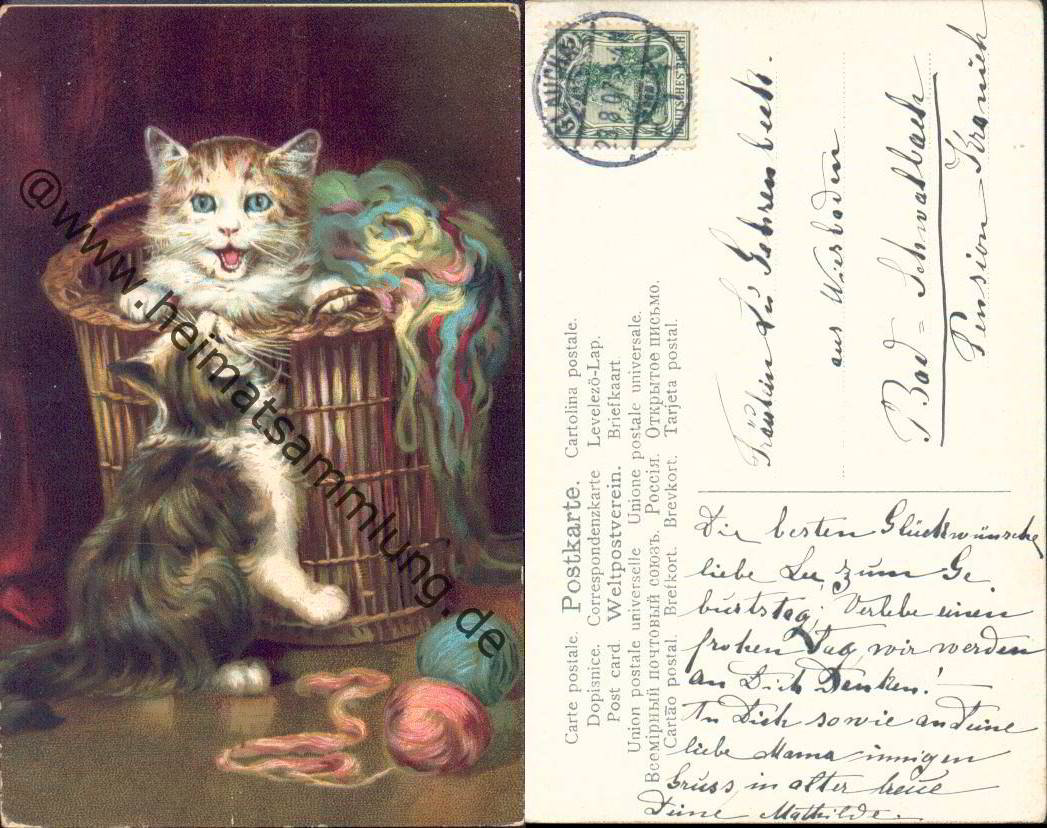 @www.heimatsammlung.de
GLAUCHAU
23.8.07
DEUTSCHES REICH
Carte postale. Postkarte. Cartolina postale.
Dopisnice. Correspondenzkarte Levelező-Lap.
Post card Weltpostverein. Briefkaart
Union postale universelle Unione postale universale.
Всемірный почтовый союзъ. Россія. Открытое письмо.
Cartão postal. Brefkort. Brevkort. Tarjeta postal.
Fräulein Lu Gehrenbeck.
aus Wiesbaden
Bad-Schwalbach
Pension-Kranich
Die besten Glückwünsche
liebe Lu, zum Ge
burtstag; Verlebe einen
frohen Tag, wir werden
an Dich Denken!
An Dich sowie an Deine
liebe Mama innigen
Gruss, in alter treue
Deine Mathilde.